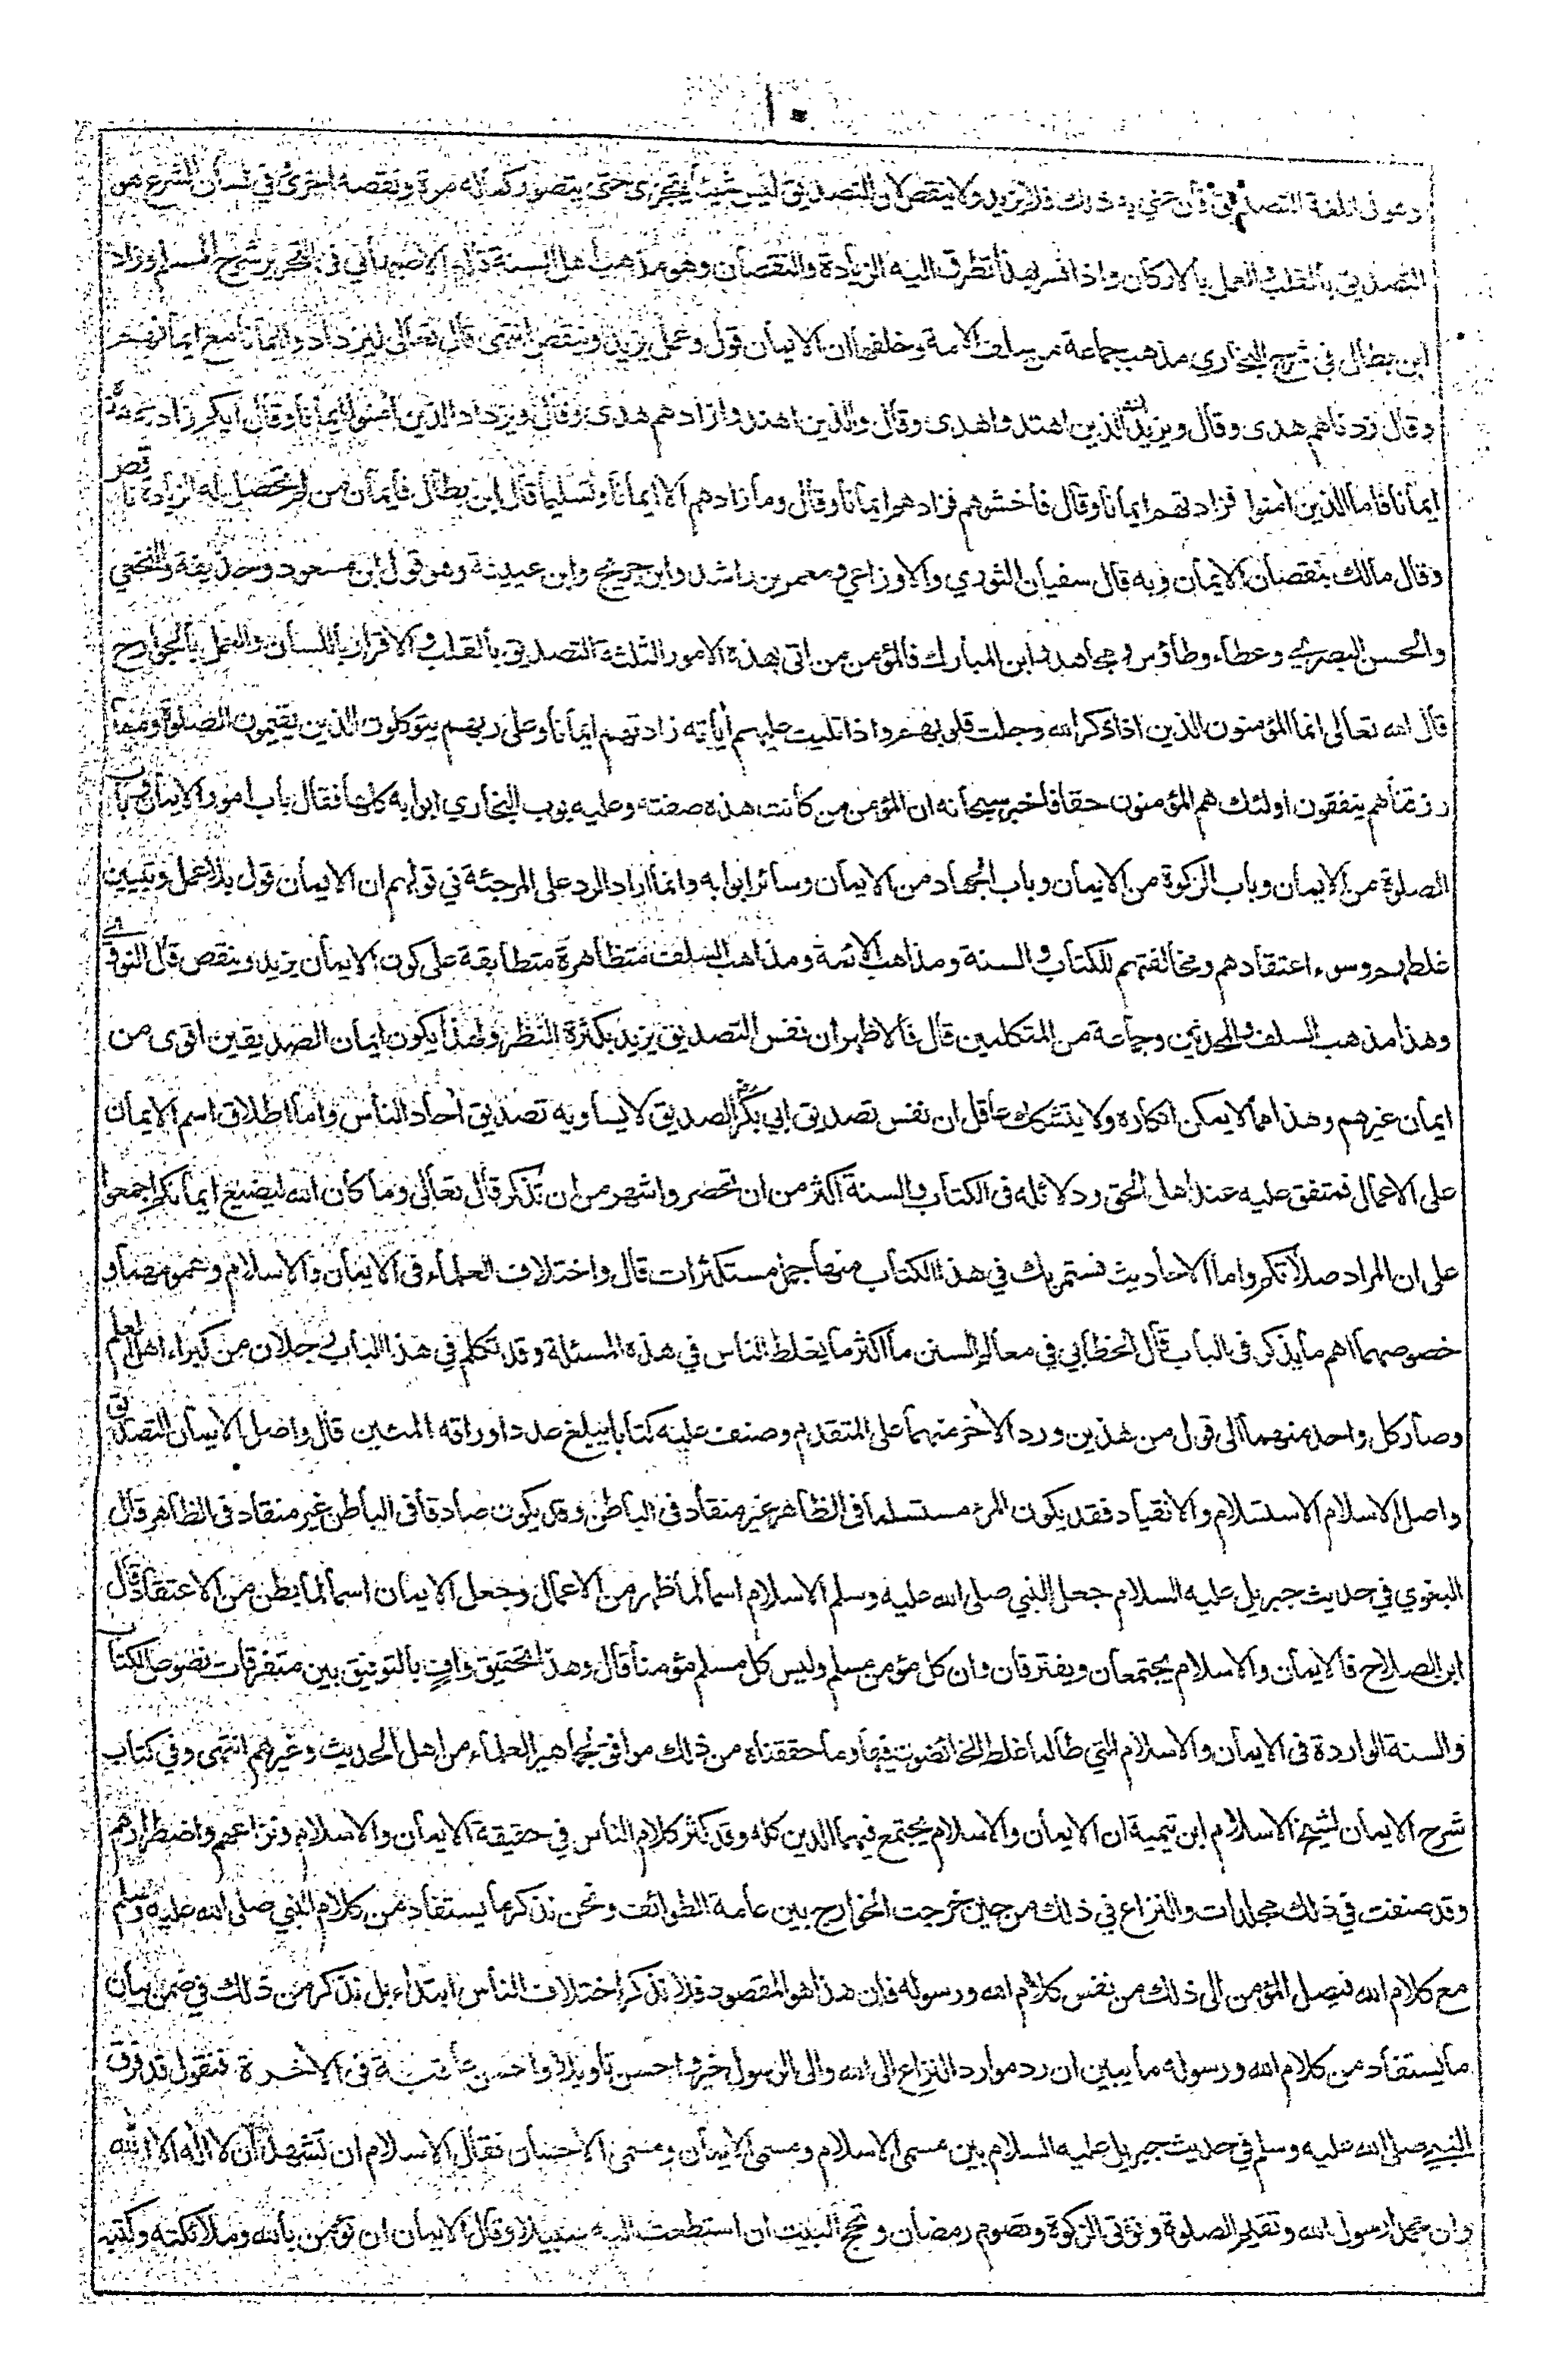 ١٠
وهو في اللغة التصديق فان عني به ذلك فلا يزيد ولا ينقص لان التصديق ليس شيئا يتجزى حتى يتصور كماله مرة ونقصه اخرى في لسان الشرع هو
التصديق بالقلب والعمل بالاركان واذا فسر بهذا تطرق اليه الزيادة والنقصان وهو مذهب اهل السنة قاله الاصبهاني في التحرير شرح المسلم وزاد
ابن بطال في شرح البخاري مذهب جماعة من سلف الامة وخلفها ان الايمان قول وعمل يزيد وينقص انتهى قال تعالى ليزدادوا ايمانا مع ايمانهم
وقال زدناهم هدى وقال ويزيد الله الذين اهتدوا هدى وقال والذين اهتدوا زادهم هدى وقال ويزداد الذين امنوا ايمانا وقال ايكم زادته هذه
ايمانا فاما الذين امنوا فزادتهم ايمانا وقال فاخشوهم فزادهم ايمانا وقال وما زادهم الا ايمانا وتسليما قال ابن بطال فايمان من لم تحصل له الزيادة ناقص
وقال مالك بنقصان الايمان وبه قال سفيان الثوري والاوزاعي ومعمر بن راشد وابن جريج وابن عيينة وهو قول ابن مسعود وحذيفة والنخعي
والحسن البصري وعطاء وطاؤس ومجاهد وابن المبارك فالمؤمن من اتى بهذه الامور الثلثة التصديق بالقلب والاقرار باللسان والعمل بالجوارح
قال الله تعالى انما المؤمنون الذين اذا ذكر الله وجلت قلوبهم واذا تليت عليهم اياته زادتهم ايمانا وعلى ربهم يتوكلون الذين يقيمون الصلوة ومما
رزقناهم ينفقون اولئك هم المؤمنون حقا فاخبر سبحانه ان المؤمن من كانت هذه صفته وعليه بوب البخاري ابوابه كلها فقال باب امور الايمان وباب
الصلوة من الايمان وباب الزكوة من الايمان وباب الجهاد من الايمان وسائر ابوابه وانما اراد الرد على المرجئة في قولهم ان الايمان قول بلا عمل وتبيين
غلطهم وسوء اعتقادهم ومخالفتهم للكتاب والسنة ومذاهب الائمة ومذاهب السلف متظاهرة متطابقة على كون الايمان يزيد وينقص قال النووي
وهذا مذهب السلف والمحدثين وجماعة من المتكلمين قال فالاظهر ان نفس التصديق يزيد بكثرة النظر ولهذا يكون ايمان الصديقين اقوى من
ايمان غيرهم وهذا مما لا يمكن انكاره ولا يتشكك عاقل ان نفس تصديق ابي بكر الصديق لا يساويه تصديق احاد الناس واما اطلاق اسم الايمان
على الاعمال فمتفق عليه عند اهل الحق ودلائله في الكتاب والسنة اكثر من ان تحصر واشهر من ان تذكر قال تعالى وما كان الله ليضيع ايمانكم اجمعوا
على ان المراد صلاتكم واما الاحاديث فستمر بك في هذا الكتاب منها جمل مستكثرات قال واختلاف العلماء في الايمان والاسلام وعمومهما و
خصوصهما اهم ما يذكر في الباب قال الخطابي في معالم السنن ما اكثر ما يغلط الناس في هذه المسئلة وقد تكلم في هذا الباب رجلان من كبراء اهل العلم
وصار كل واحد منهما الى قول من هذين ورد الآخر منهما على المتقدم وصنف عليه كتابا يبلغ عدد اوراقه المئين قال واصل الايمان التصديق
واصل الاسلام الاستسلام والانقياد فقد يكون المرء مستسلما في الظاهر غير منقاد في الباطن وقد يكون صادقا في الباطن غير منقاد في الظاهر قال
البغوي في حديث جبريل عليه السلام جعل النبي صلى الله عليه وسلم الاسلام اسما لما ظهر من الاعمال وجعل الايمان اسما لما بطن من الاعتقاد قال
ابن الصلاح فالايمان والاسلام يجتمعان ويفترقان وان كل مؤمن مسلم وليس كل مسلم مؤمنا قال وهذا تحقيق وافٍ بالتوفيق بين متفرقات نصوص الكتاب
والسنة الواردة في الايمان والاسلام التي طالما غلط الخائضون فيها وما حققناه من ذلك موافق لجماهير العلماء من اهل الحديث وغيرهم انتهى وفي كتاب
شرح الايمان لشيخ الاسلام ابن تيمية ان الايمان والاسلام يجتمع فيهما الدين كله وقد كثر كلام الناس في حقيقة الايمان والاسلام ونزاعهم واضطرابهم
وقد صنفت في ذلك مجلدات والنزاع في ذلك من حين خرجت الخوارج بين عامة الطوائف ونحن نذكر ما يستفاد من كلام النبي صلى الله عليه وسلم
مع كلام الله فيصل المؤمن الى ذلك من نفس كلام الله ورسوله فان هذا هو المقصود فلا نذكر اختلاف الناس ابتداء بل نذكر من ذلك في ضمن بيان
ما يستفاد من كلام الله ورسوله ما يبين ان رد موارد النزاع الى الله والى الرسول خير واحسن تاويلا واحسن عاقبة في الاخرة فنقول قد فرق
النبي صلى الله عليه وسلم في حديث جبريل عليه السلام بين مسمى الاسلام ومسمى الايمان ومسمى الاحسان فقال الاسلام ان تشهد ان لا اله الا الله
وان محمدا رسول الله وتقيم الصلوة وتؤتي الزكوة وتصوم رمضان وتحج البيت ان استطعت اليه سبيلا وقال الايمان ان تؤمن بالله وملائكته وكتبه